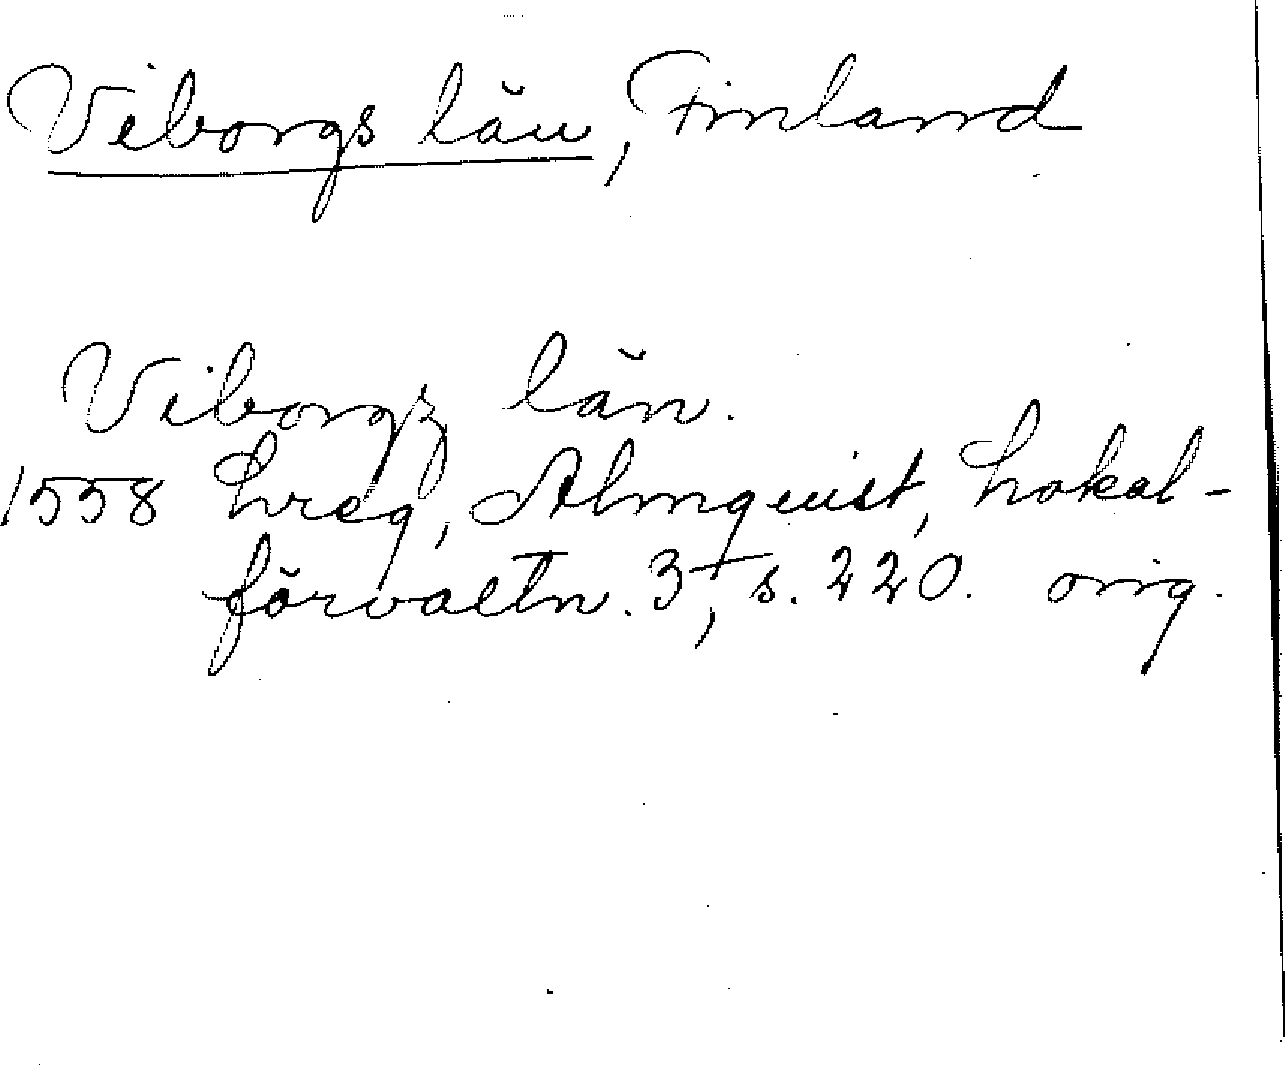 Viborgs län, Finland
Viborgz län.
1558 Lreg, Almquist, Lokal-
förvaltn. 3, s. 220. orig.